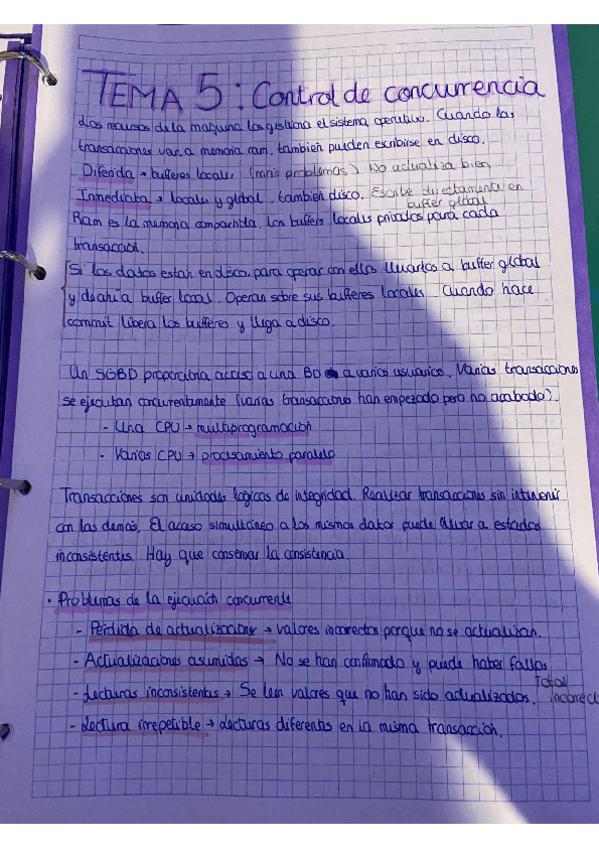 TEMA 5: Control de concurrencia
Los recursos de la maquina los gestiona el sistema operativo. Cuando las
transacciones van a memoria ram, tambien pueden escribirse en disco.
Diferida → bufferes locales (mas problemas) No actualiza bien
Inmediata → locales y global, tambien disco. Escribe directamente en
buffer global
Ram es la memoria compartida. Los buffers locales privados para cada
transacción.
Si los datos estan en disco, para operar con ellos llevarlos a buffer global
y de ahí a buffer local. Operan sobre sus bufferes locales. Cuando hace
commit libera los bufferes y llega a disco.
Un SGBD proporciona acceso a una BD a varios usuarios. Varias transacciones
se ejecutan concurrentemente (varias transacciones han empezado pero no acabado).
- Una CPU → multiprogramación
- Varias CPU → procesamiento paralelo
Transacciones son unidades lógicas de integridad. Realizar transacciones sin intervenir
con las demás. El acceso simultáneo a los mismos datos puede llevar a estados
inconsistentes. Hay que conservar la consistencia.
· Problemas de la ejecución concurrente
- Pérdida de actualizaciones → valores incorrectos porque no se actualizan.
- Actualizaciones asumidas → No se han confirmado y puede haber fallos.
- Lecturas inconsistentes → Se leen valores que no han sido actualizados. Total
incorrect
- Lectura irrepetible → Lecturas diferentes en la misma transacción.